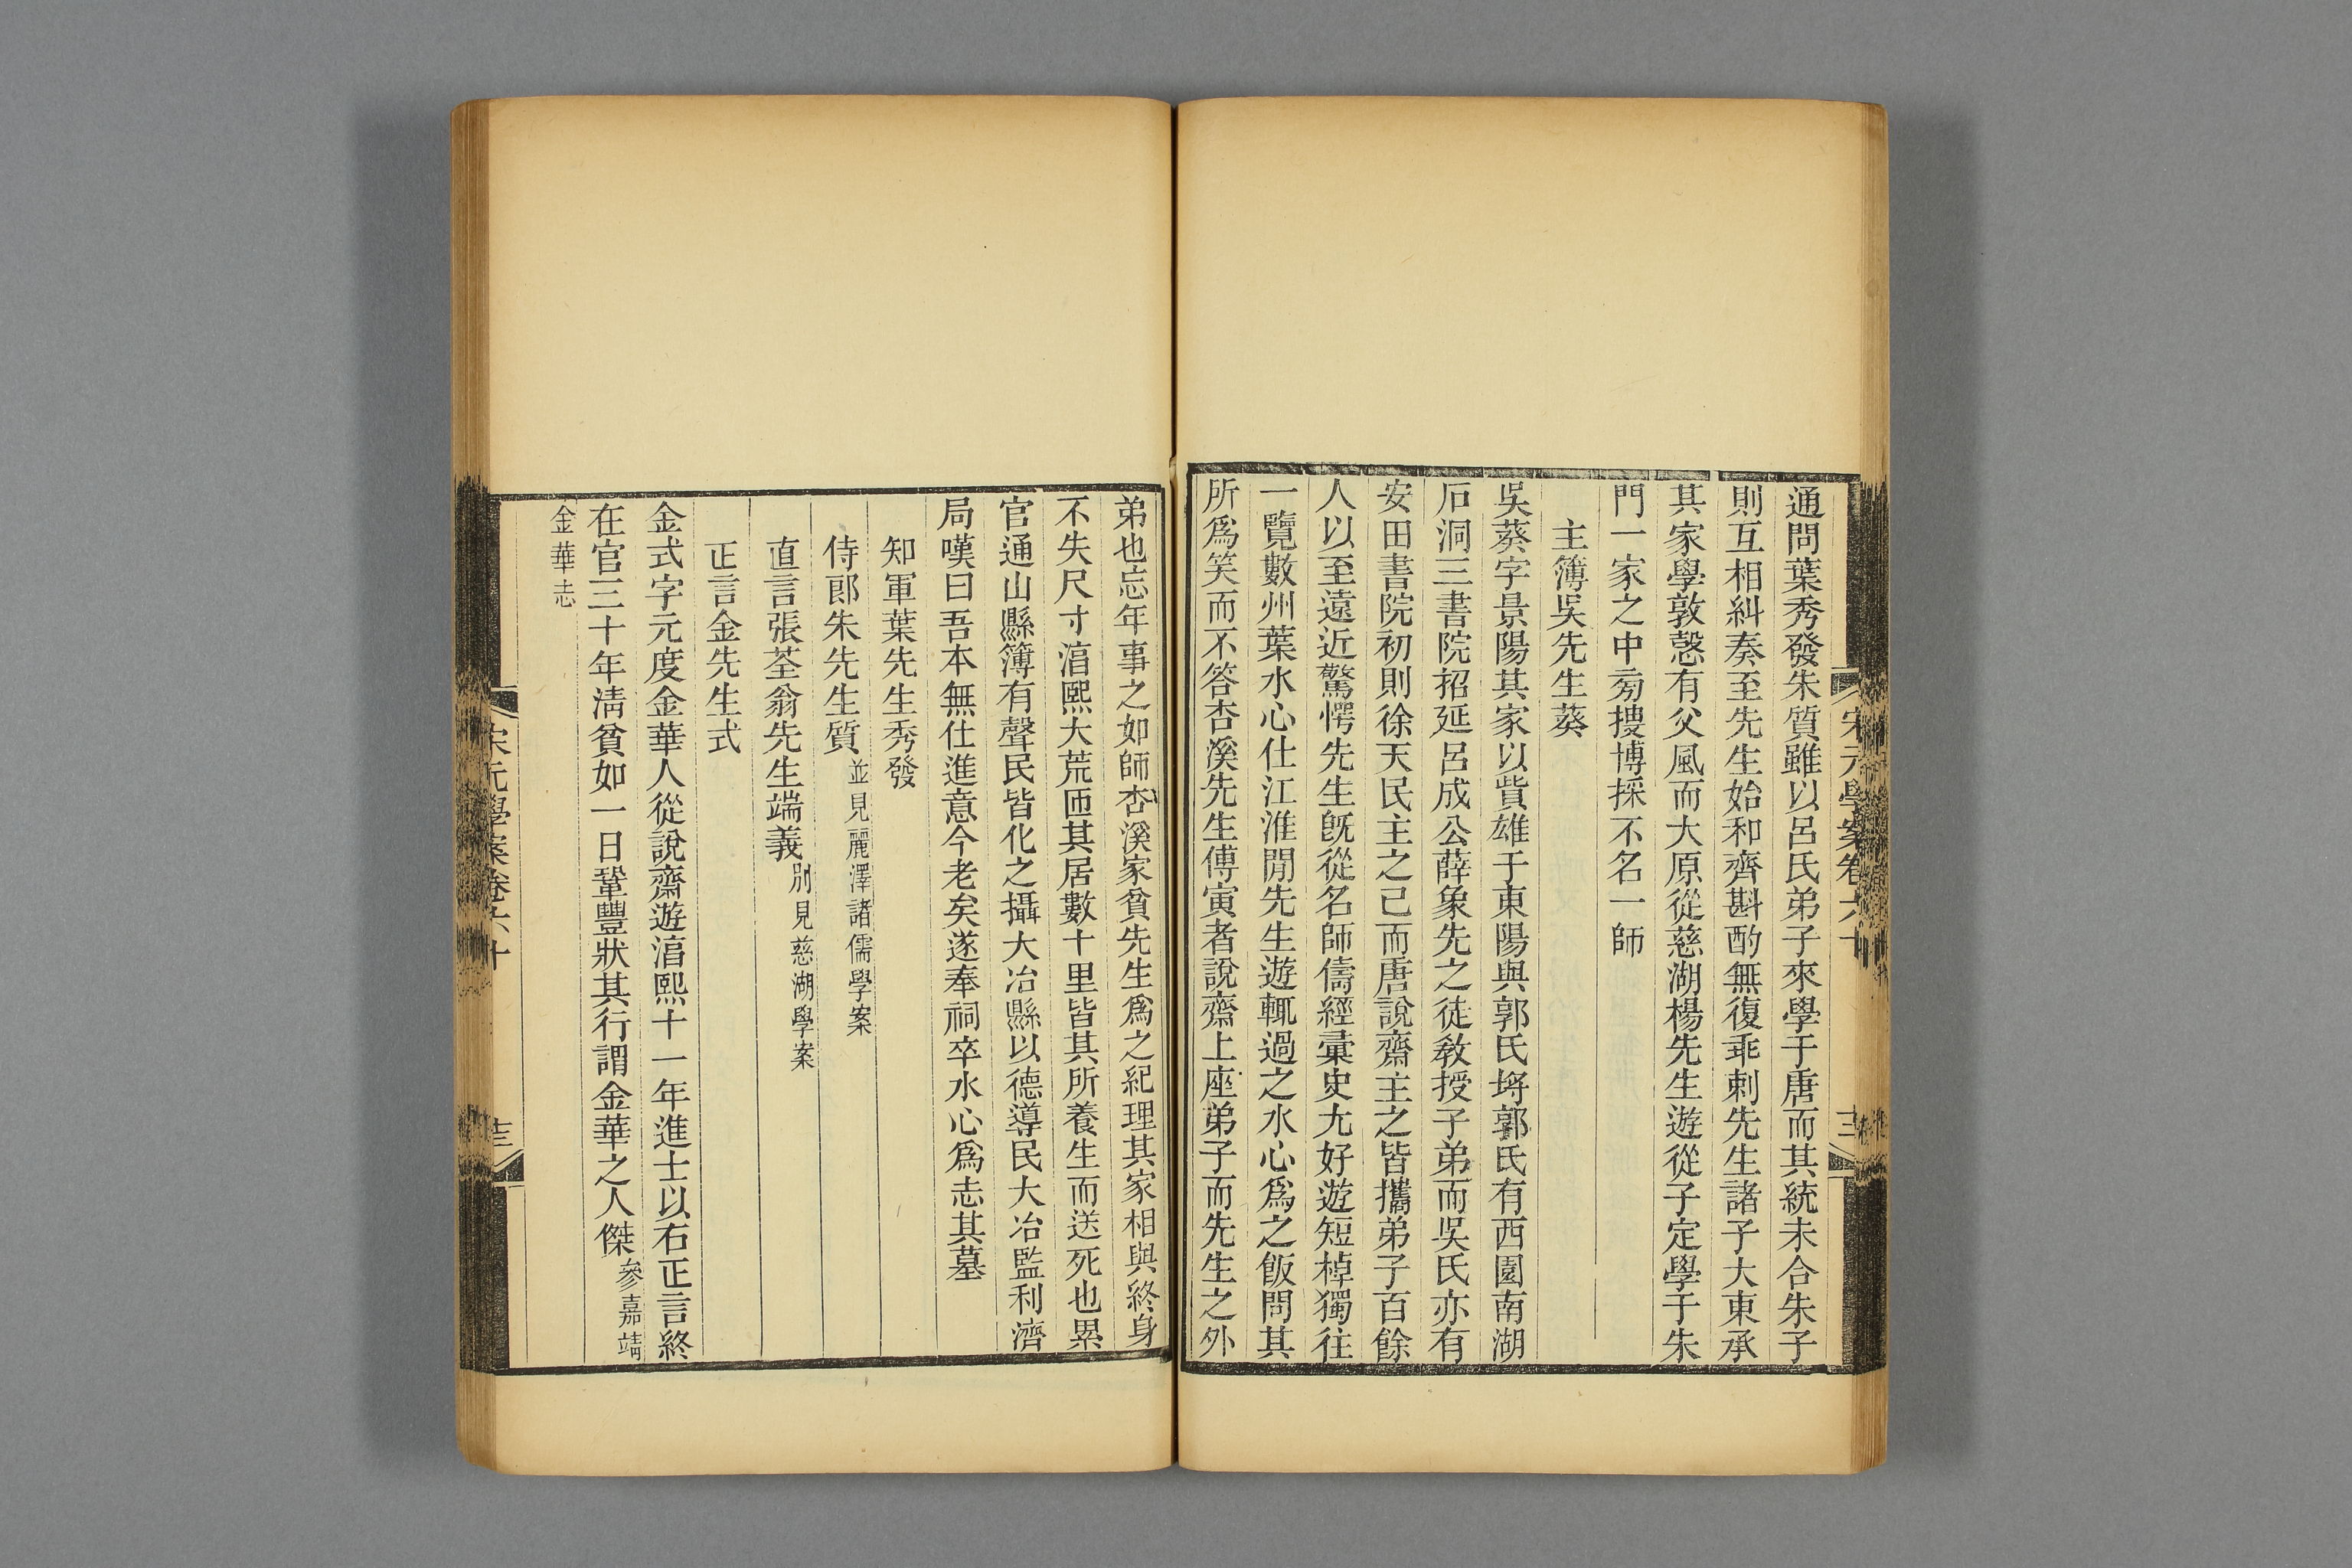 宋元學案卷六十
通問葉秀發朱質雖以呂氏弟子來學于唐而其統未合朱子
則互相糾奏至先生始和齊斟酌無復乖剌先生諸子大東承
其家學敦愨有父風而大原從慈湖楊先生遊從子定學于朱
門一家之中㫄摉博採不名一師
主簿吳先生葵
吳葵字景陽其家以貲雄于東陽與郭氏埒郭氏有西園南湖
石洞三書院招延呂成公薛象先之徒敎授子弟而吳氏亦有
安田書院初則徐天民主之已而唐說齋主之皆攜弟子百餘
人以至遠近驚愕先生旣從名師儔經彙史尢好遊短棹獨往
一覽數州葉水心仕江淮閒先生遊輒過之水心爲之飯問其
所爲笑而不答杏溪先生傅寅者說齋上座弟子而先生之外
弟也忘年事之如師杏溪家貧先生爲之紀理其家相與終身
不失尺寸湻熙大荒匝其居數十里皆其所養生而送死也累
官通山縣簿有聲民皆化之攝大冶縣以德導民大冶監利濟
局嘆曰吾本無仕進意今老矣遂奉祠卒水心爲志其墓
知軍葉先生秀發
侍郎朱先生質並見麗澤諸儒學案
直言張荃翁先生端義別見慈湖學案
正言金先生式
金式字元度金華人從說齋遊湻熙十一年進士以右正言終
在官三十年淸貧如一日鞏豐狀其行謂金華之人傑參嘉靖
金華志
宋元學案卷六十